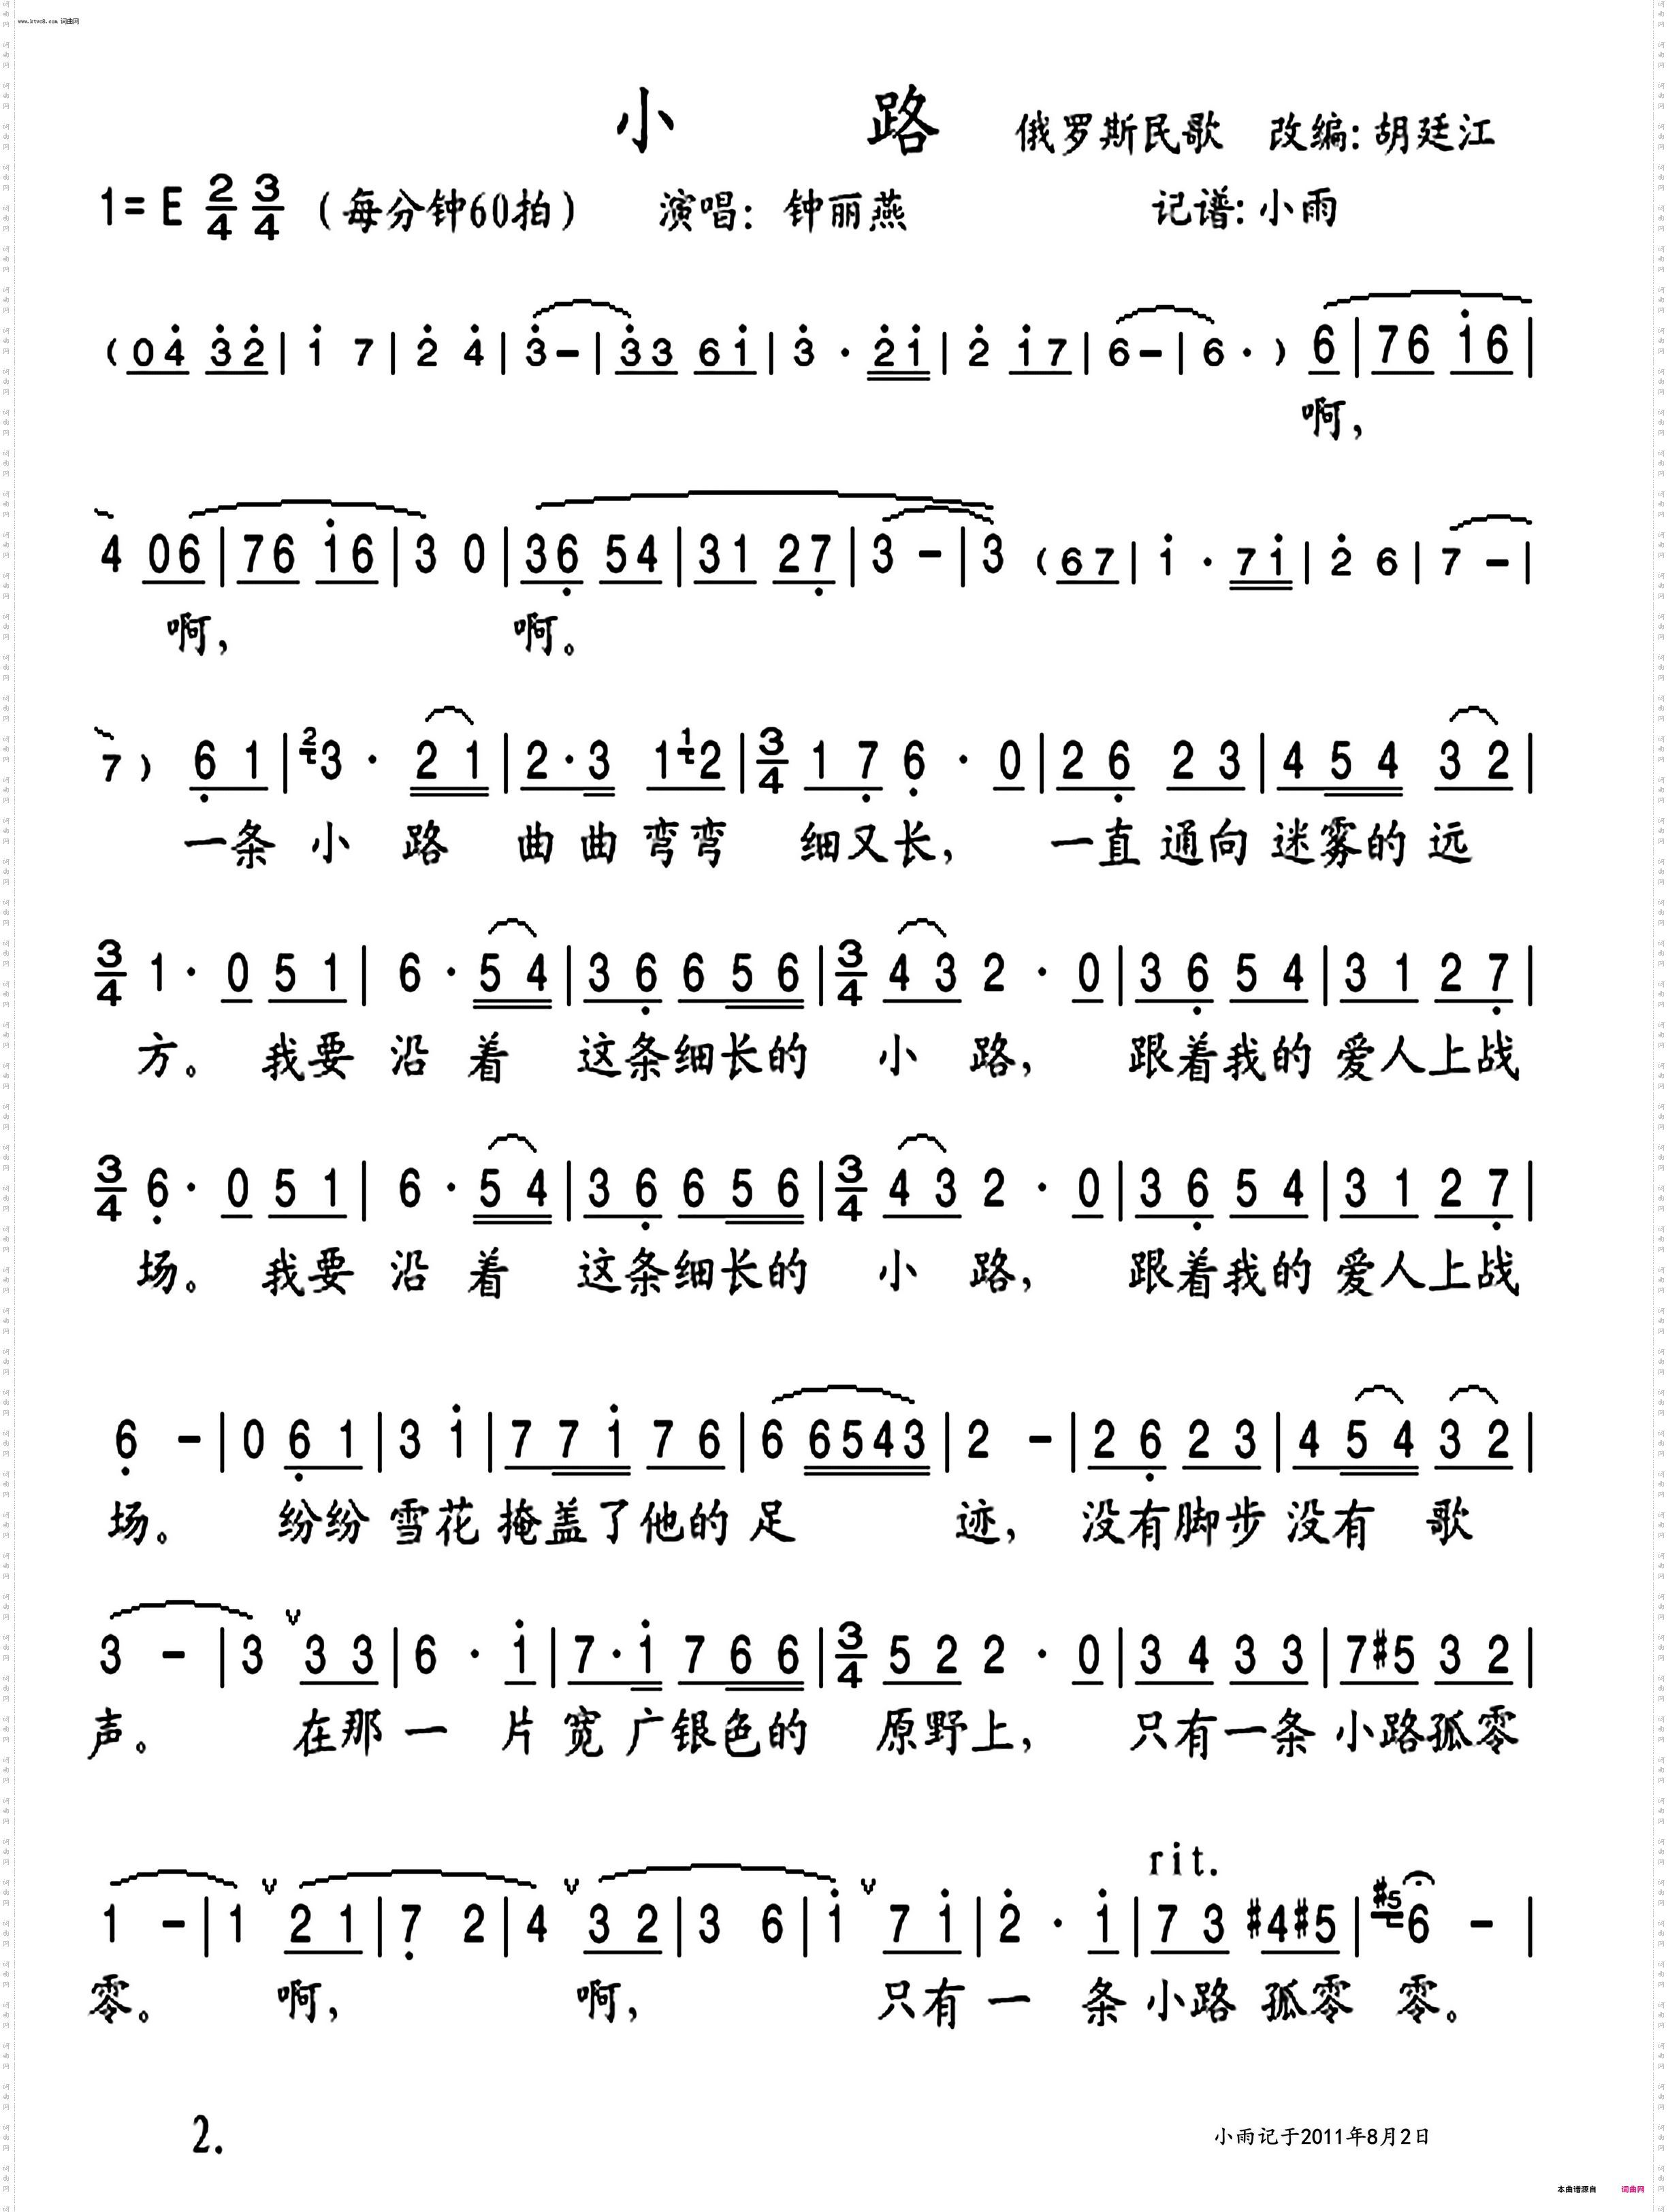 www.ktvc8.com 词曲网
小 路 俄罗斯民歌 改编: 胡廷江
1= E 2/4 3/4 (每分钟60拍) 演唱: 钟丽燕 记谱: 小雨
( 0 4̇ 3̇ 2̇ | 1̇ 7 | 2̇ 4̇ | 3̇ – | 3̇ 3 6 1̇ | 3̇ · 2̇ 1̇ | 2̇ 1̇ 7 | 6 – | 6 · ) 6 | 7 6 1̇ 6 |
啊,
4 0 6 | 7 6 1̇ 6 | 3 0 | 3 6̣ 5 4 | 3 1 2 7̣ | 3 – | 3 ( 6 7 | 1̇ · 7 1̇ | 2̇ 6 | 7 – |
啊, 啊。
7 ) 6̣ 1 | 2 3 · 2 1 | 2 · 3 1 1 2 | 3/4 1 7̣ 6̣ · 0 | 2 6̣ 2 3 | 4 5 4 3 2 |
一条 小 路 曲 曲 弯弯 细又长, 一直 通向 迷雾的 远
3/4 1 · 0 5 1 | 6 · 5 4 | 3 6̣ 6 5 6 | 3/4 4 3 2 · 0 | 3 6̣ 5 4 | 3 1 2 7̣ |
方。 我要 沿 着 这条细长的 小 路, 跟着我的 爱人上战
3/4 6̣ · 0 5 1 | 6 · 5 4 | 3 6̣ 6 5 6 | 3/4 4 3 2 · 0 | 3 6̣ 5 4 | 3 1 2 7̣ |
场。 我要 沿 着 这条细长的 小 路, 跟着我的 爱人上战
6̣ – | 0 6̣ 1 | 3 1̇ | 7 7 1̇ 7 6 | 6 6 5 4 3 | 2 – | 2 6̣ 2 3 | 4 5 4 3 2 |
场。 纷纷 雪花 掩盖了他的 足 迹, 没有脚步 没有 歌
3 – | 3 ∨ 3 3 | 6 · 1̇ | 7 · 1̇ 7 6 6 | 3/4 5 2 2 · 0 | 3 4 3 3 | 7 #5 3 2 |
声。 在那 一 片 宽 广银色的 原野上, 只有一条 小路孤零
rit.
1 – | 1 ∨ 2 1 | 7̣ 2 | 4 ∨ 3 2 | 3 6 | 1̇ ∨ 7 1̇ | 2̇ · 1̇ | 7 3 #4 #5 | #5 6 – |
零。 啊, 啊, 只有 一 条 小路 孤零 零。
2.
小雨记于2011年8月2日
本曲谱源自 词曲网